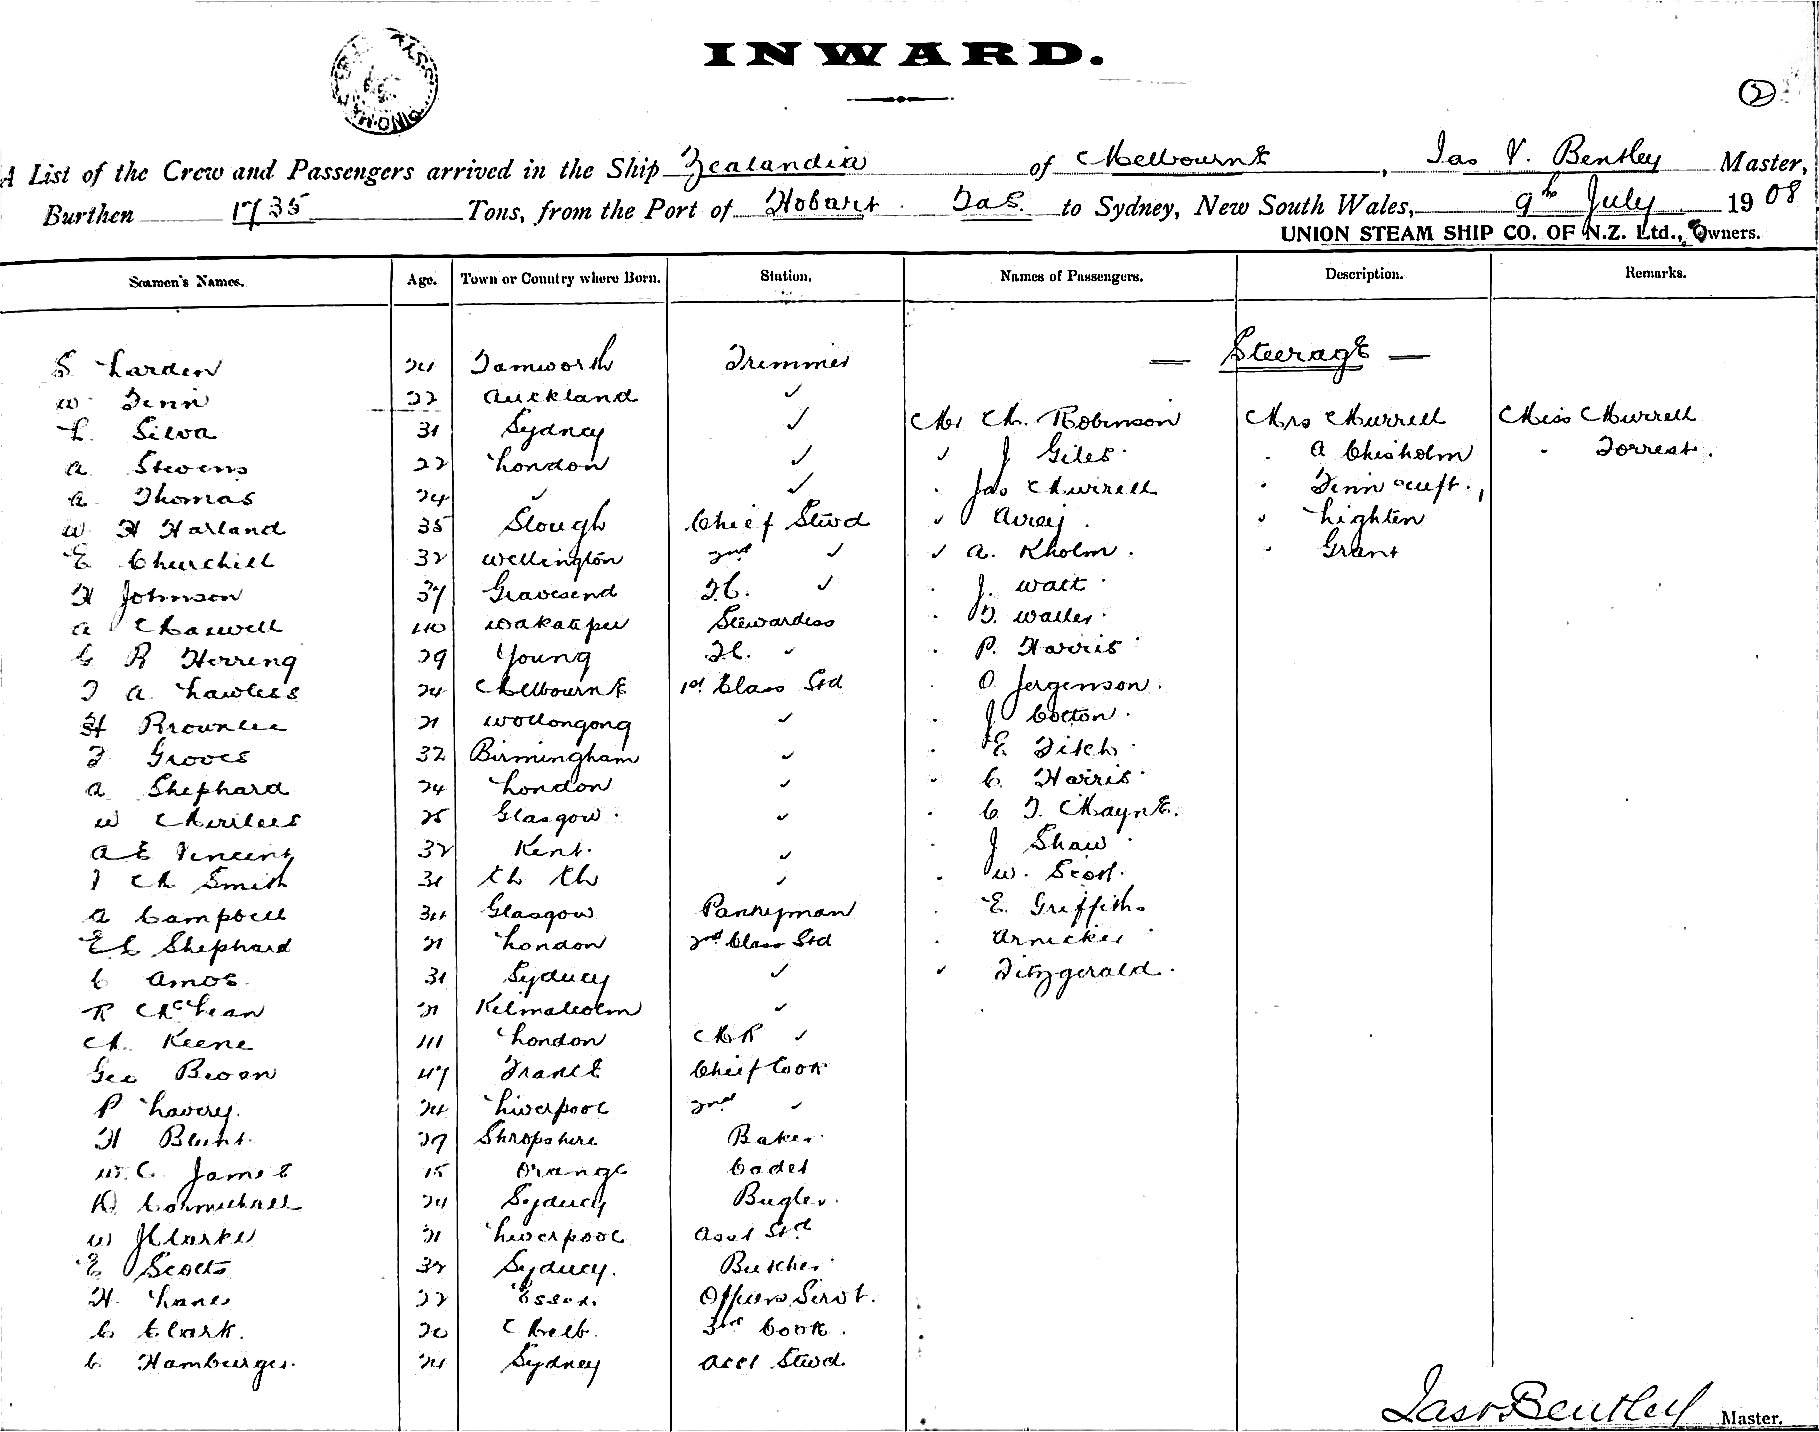 INWARD.
2
A List of the Crew and Passengers arrived in the Ship Zealandia of Melbourne, Jas V. Bentley Master,
Burthen 1735 Tons, from the Port of Hobart Tas. to Sydney, New South Wales, 9th July 1908
UNION STEAM SHIP CO. OF N.Z. Ltd., Owners.
Seamen's Names. Age. Town or Country where Born. Station. Names of Passengers. Description. Remarks.
Steerage
S Larden 24 Tamworth Trimmer
W Finn 22 Auckland ✓
L. Silva 31 Sydney ✓ Mr M. Robinson Mrs Murrell Miss Murrell
A Stevens 22 London ✓ " J Giles " A Chisholm " Forrest.
A Thomas 24 ✓ ✓ " Jas Murrell " Finn
W H Harland 35 Slough Chief Stwd " Avrey " Lighten
E Churchill 32 Wellington 2nd ✓ " A. Kholm. " Grant
H Johnson 37 Gravesend F.C. ✓ " J. Watt
A Maxwell 40 Wakatipu Stewardess " F. Waller
C R Herring 29 Young F.C. " " P. Harris
F A Lawless 24 Melbourne 1st Class Std " O Jergenson.
H Brownlee 21 Wollongong ✓ " J Cotton.
F Groves 32 Birmingham ✓ " E Fitch
A Shephard 24 London ✓ " C. Harris
W Merilees 25 Glasgow ✓ " C F. Mayne.
A E Vincent 32 Kent. ✓ J Shaw
M Smith 31 ✓ " W. Scott.
A Campbell 34 Glasgow Pantryman " E. Griffiths
E L Shephard 21 London 2nd Class Std " Arnicker
C Amos 31 Sydney ✓ " Fitzgerald.
R McLean 21 Kilmalcolm ✓
M. Keene 41 London M R ✓
Geo 47 France Chief Cook
P Lavery. 24 Liverpool 2nd ✓
H Blunt. 27 Shropshire Baker
W. C. James 15 Orange Cadet
D Carmichael 24 Sydney Bugler.
W J Clarke 21 Liverpool Asst Std
E Scotts 32 Sydney. Butcher
H. Lane 22 Essex. Officers Servt.
C Clark. 20 Melb. 3rd Cook.
C Hamburger. 24 Sydney Asst Stwd
Jas V Bentley Master.